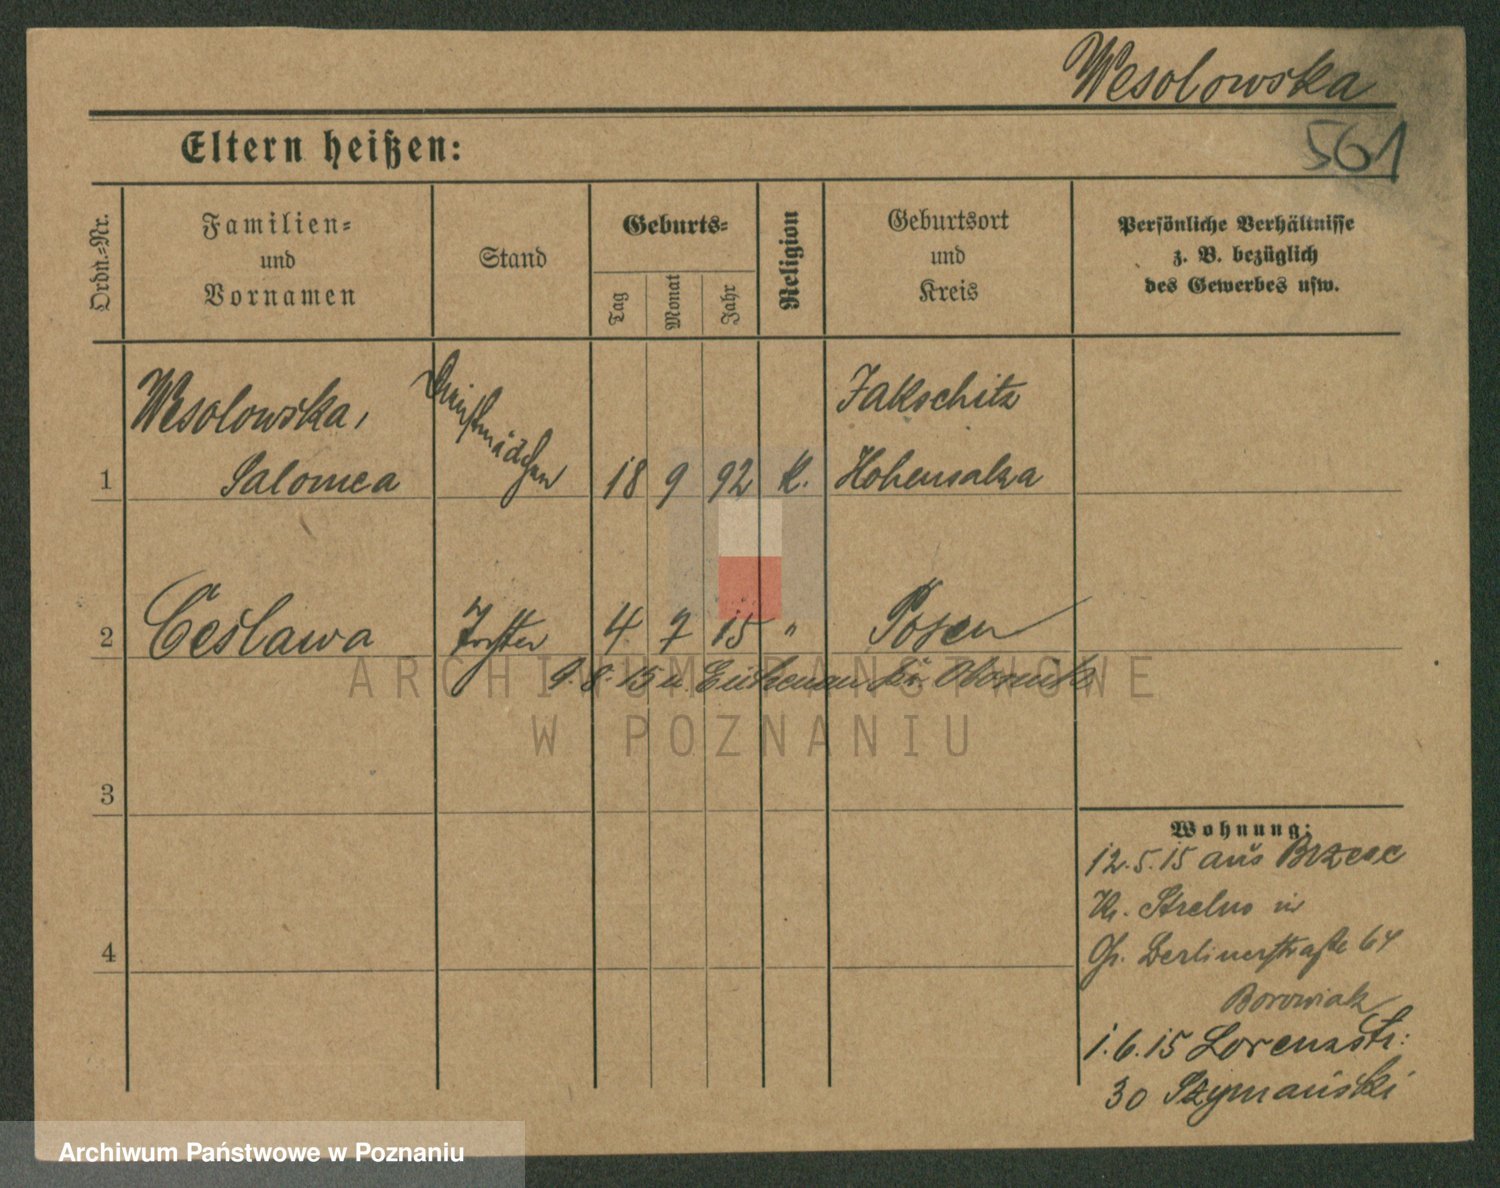 Wesolowska
561
Eltern heißen:
Ordn.-Nr.
Familien-
und
Vornamen
Stand
Geburts-
Tag
Monat
Jahr
Religion
Geburtsort
und
Kreis
Persönliche Verhältnisse
z. B. bezüglich
des Gewerbes usw.
1
Wesolowska,
Salomea
Dienstmädchen
18 9 92 K.
Jakschitz
Hohensalza
2
Ceslawa
Tochter
4 7 15 "
Posen
9. 8. 15 n. Eichenau Kr. Obornik
3
4
Wohnung:
12.5.15 aus Brzesc
Kr. Strelno in
Gr. Berlinerstraße 64
Borowiak
1.6.15 Lorenzstr.
30 Szymański
ARCHIWUM PAŃSTWOWE
W POZNANIU
Archiwum Państwowe w Poznaniu